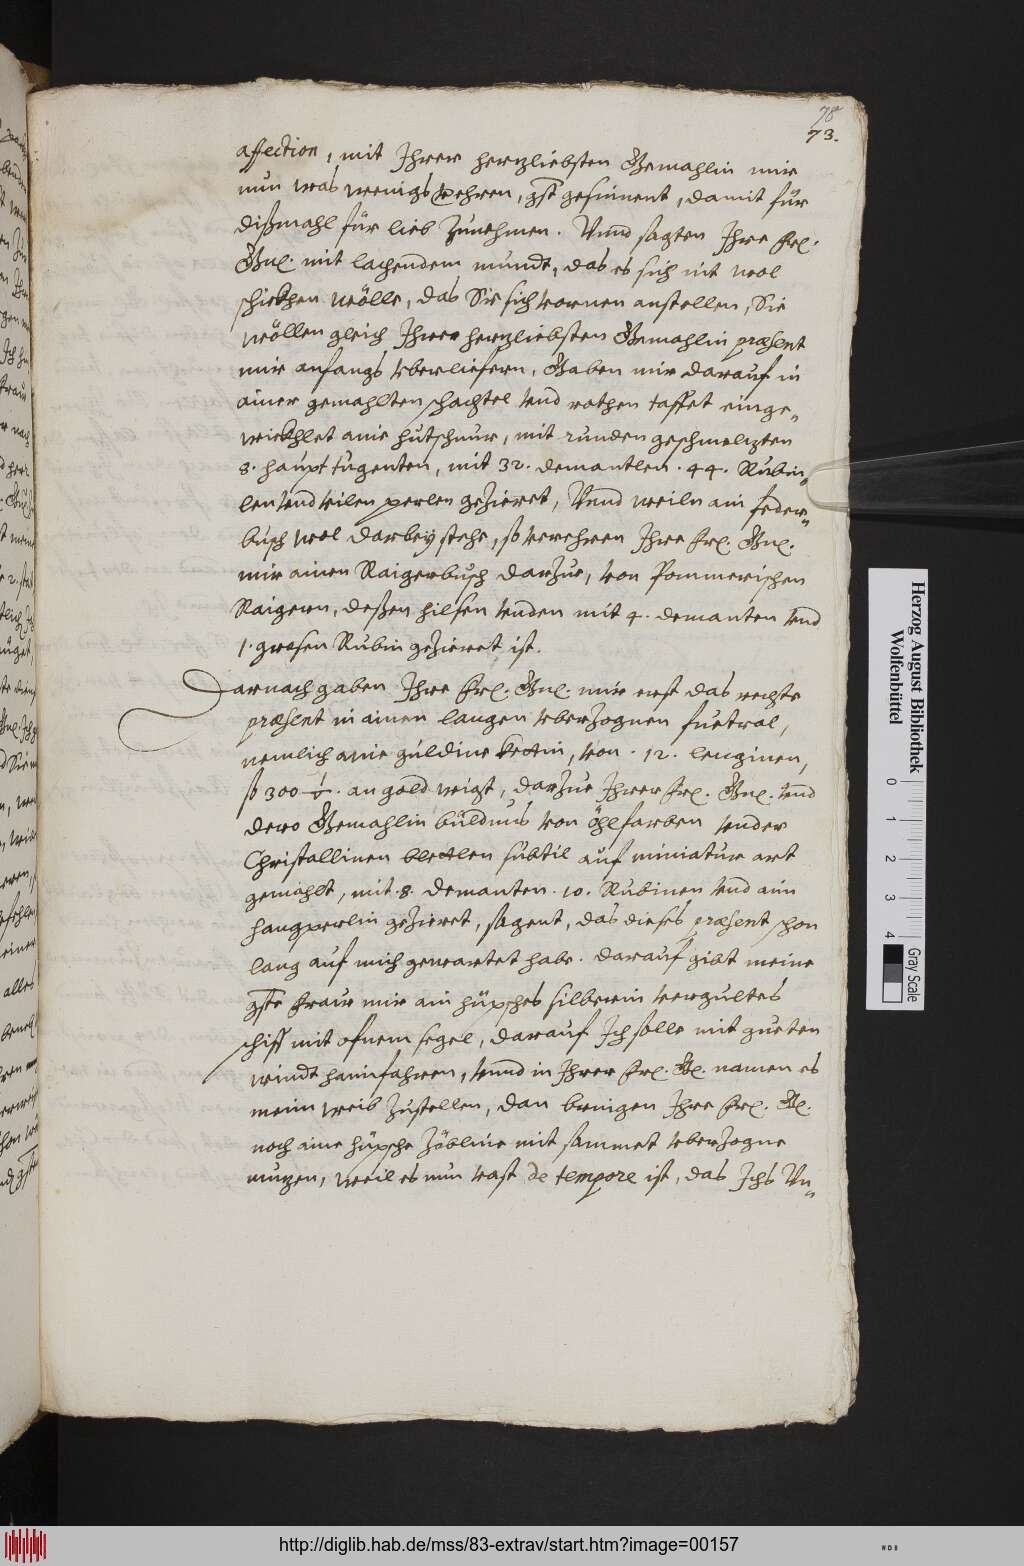 78
73.
affection, mit Ihrer herzliebsten Gemahlin mir
nun was wenigs verehren, gst gesinnent, damit für
dißmahl für lieb Zunehmen. Vnnd sagten Ihre frl.
Gnl. mit lachendem mundt, das es sich nit wol
schickhen wölle, das Sie sich vornen anstellen, Sie
wöllen gleich Ihrer herzliebsten Gemahlin præsent
mir anfangs vberliefern, Gaben mir darauf in
ainer gemahlten schachtel vnd rothen taffet einge„
wickhlet anie hutschnur, mit runden geschmelzten
8. haupt fugenten, mit 32. demantlen. 44. Rubin„
len vnd vilen perlen gezieret, Vnnd weiln ain feder„
busch wol darbey stehe, so verehren Ihre frl. Gnl.
mir ainen Raigerbusch darzue, von Pommerischen
Raigern, deßen hilsen vnden mit 4. demanten vnd
1. grosen Rubin gezieret ist.
Darnach gaben Ihre frl. Gnl. mir erst das rechte
præsent in ainem langen vberzognen fuetral,
nemlich anie güldine kettin, von. 12. lenginen,
so 300 an gold wigt, darzue Ihrer frl. Gnl. vnd
dero Gemahlin büldnus von öhlfarben vnder
Christallinen blettlen subtil auf miniatur art
gemahlt, mit. 8. demanten. 10. Rubinen vnd aim
hangperlin gezieret, sagent, das dieses præsent schon
lang auf mich gewartet habe. darauf gibt meine
gste fraw mir ain hüpsches silberin vergultes
schiff mit ofnem segel, darauf Ich solle mit gueten
windt haimfahren, vnnd in Ihrer frl. G. namen es
meim weib Zustellen, dan bringen Ihre frl. G.
noch aine hüpsche Zöbline mit sammet vberzogne
muzen, weil es nun vast de tempore ist, das Ichs Vn„
Herzog August Bibliothek
Wolfenbüttel
0 1 2 3 4
Gray Scale
http://diglib.hab.de/mss/83-extrav/start.htm?image=00157
WDB